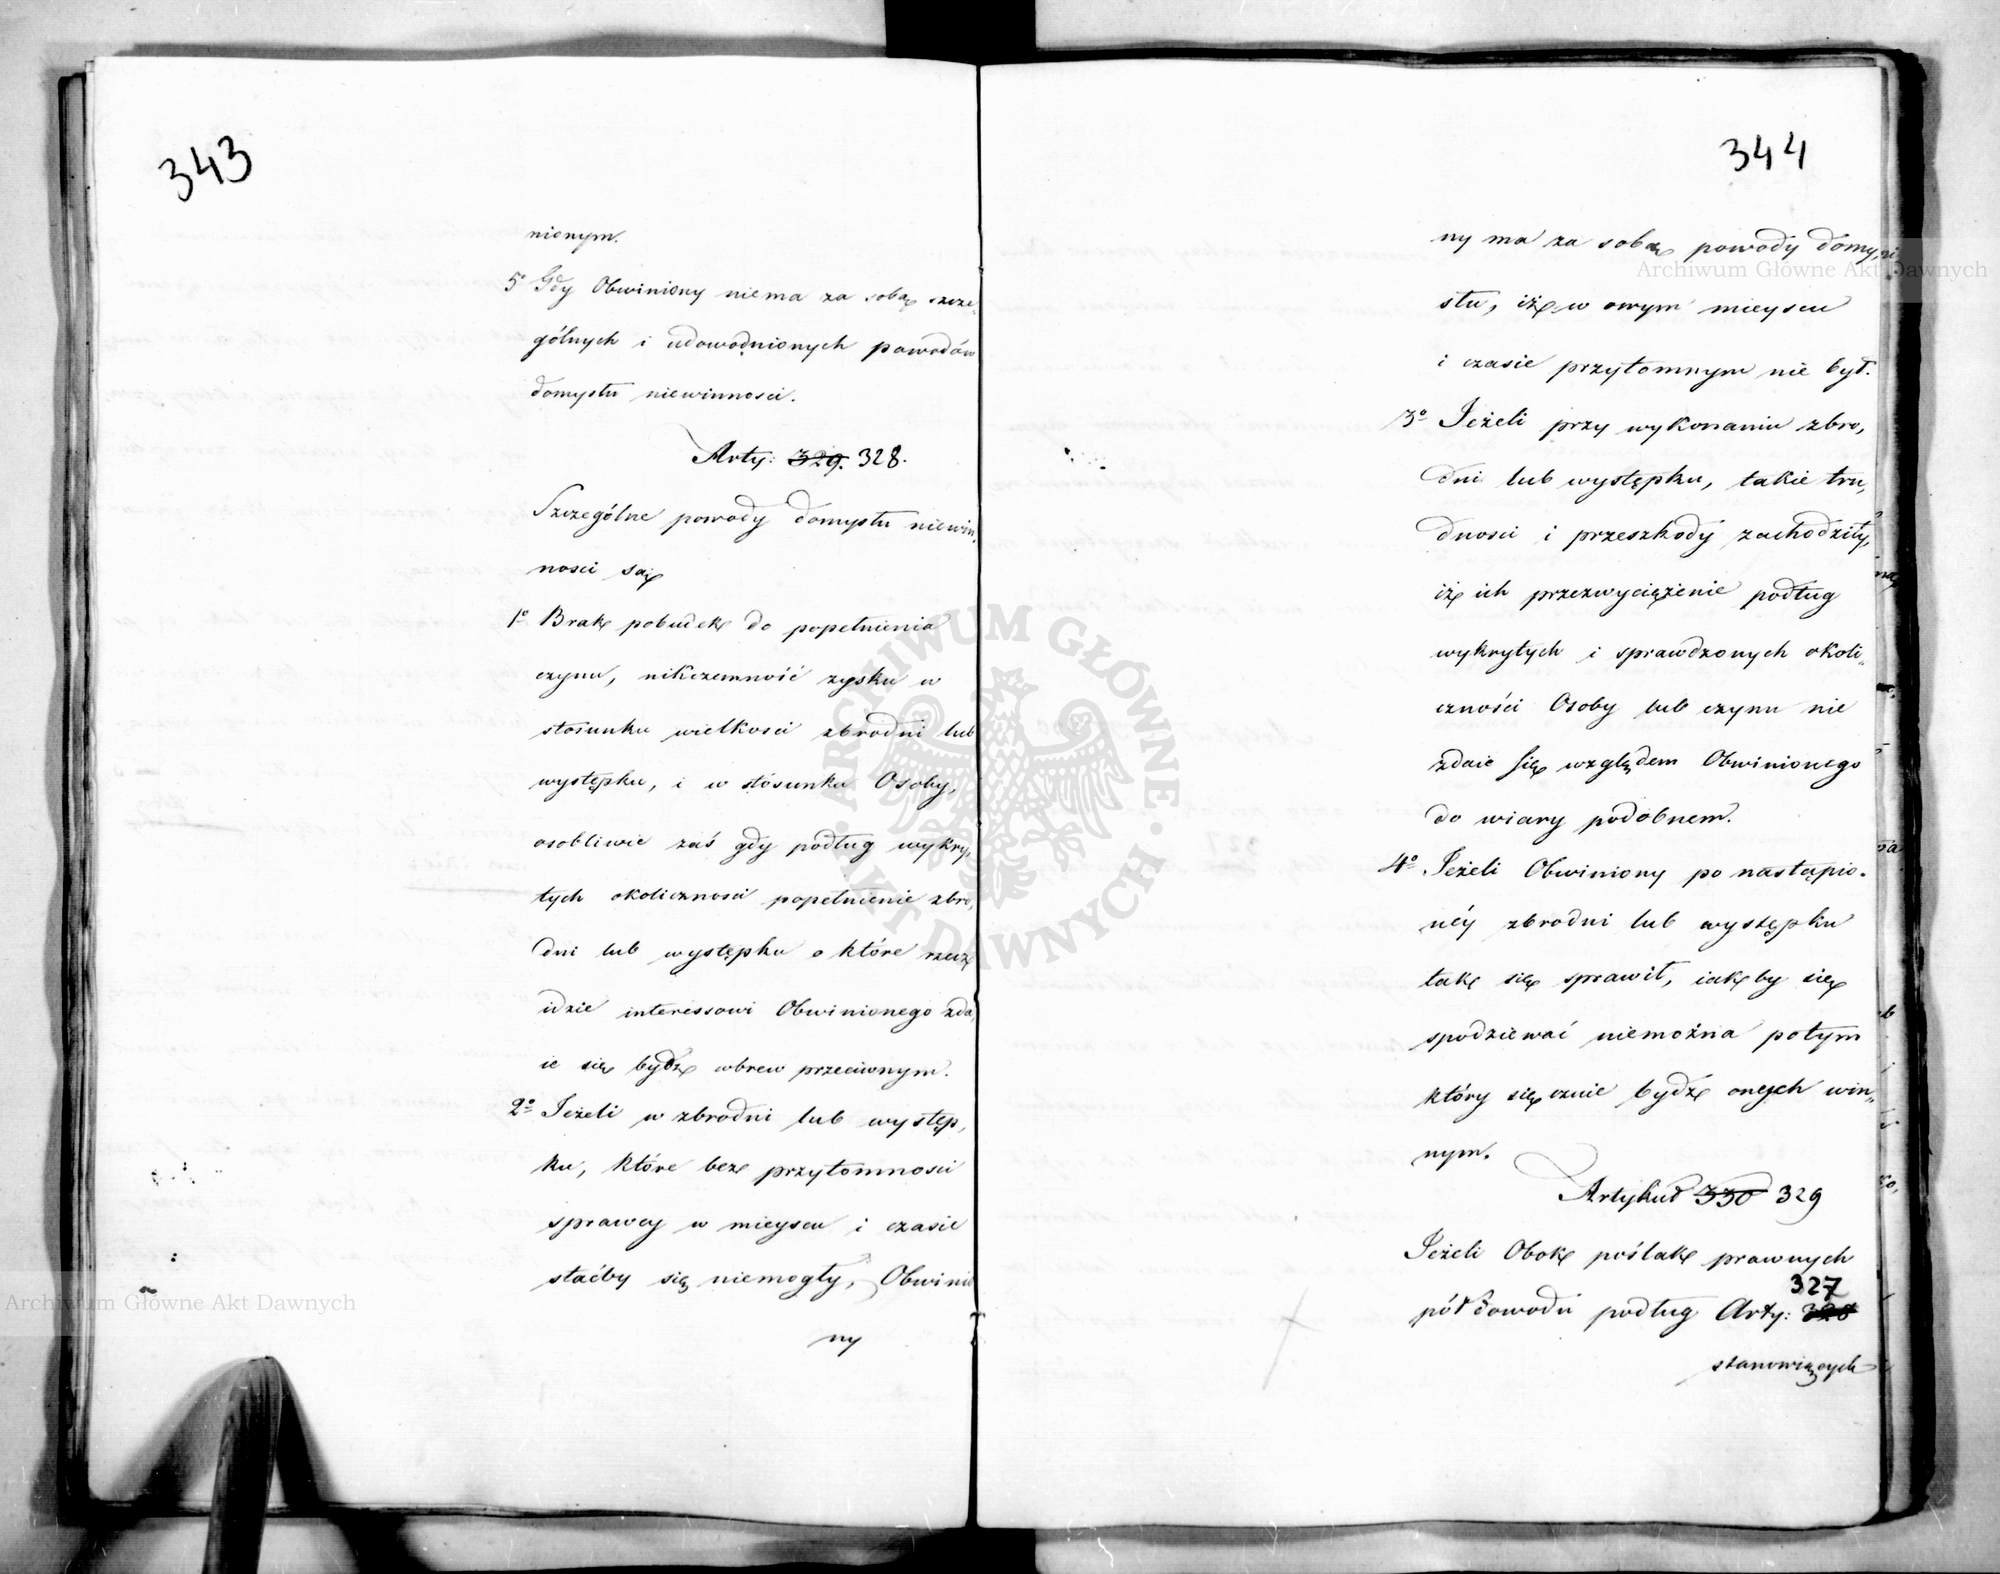 343
nionym.
5º Gdy Obwiniony niema za sobą szcze,
gólnych i udowodnionych powodów
domysłu niewinnosci.
Arty: 329. 328.
Szczególne powody domysłu niewin,
nosci są
1º Brak pobudek do popełnienia
czynu, nikczemność zysku w
stosunku wielkosci zbrodni lub
występku, i w stósunku Osoby,
osobliwie zaś gdy podług wykry,
tych okolicznosci popełnienie zbro,
dni lub występku o które rzecz
idzie interessowi Obwinionego zda,
ie się bydź wbrew przeciwnym.
2º Jeżeli w zbrodni lub występ,
ku, które bez przytomnosci
sprawcy w mieyscu i czasie
staćby się niemogły, Obwinio
ny
344
ny ma za sobą powody domy,
słu, iż w owym mieyscu
i czasie przytomnym nie był.
3º Jeżeli przy wykonaniu zbro,
dni lub występku, takie tru,
dnosci i przeszkody zachodziły,
iż ich przezwyciężenie podług
wykrytych i sprawdzonych okoli„
czności Osoby lub czynu nie
zdaie się względem Obwinionego
do wiary podobnem.
4º Jeżeli Obwiniony po nastąpio.
néy zbrodni lub występku
tak się sprawił, iakby się
spodziewać niemożna potym
który się czuie bydź onych win„
nym.
Artykuł 330 329
Jeżeli Obok poślak prawnych
327
pół dowodu podług Arty: 328
stanowiących
Archiwum Główne Akt Dawnych
Archiwum Główne Akt Dawnych
ARCHIWUM GŁÓWNE · AKT DAWNYCH ·